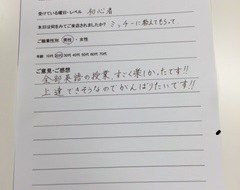 受けている曜日・レベル 初心者
本日は何を知ってご来店されましたか？ ミッチーに教えてもらって
ご職業性別 男性・女性
年齢 10代 20代 30代 40代 50代 60代 70代
ご意見・ご感想
全部英語の授業、すごく楽しかったです!!
上達できそうなのでがんばりたいです!!